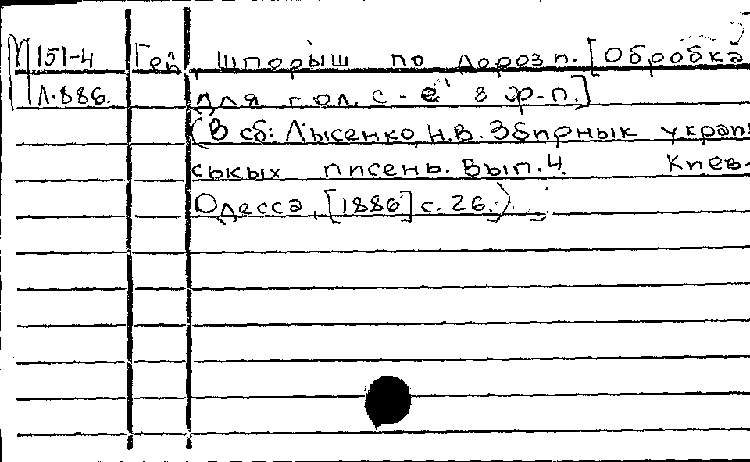 М 151-4 Гей, шпорыш по дорози. [Обробка
Л.886. для гол. с - е" з ф-п.]
(В сб: Лысенко, Н.В. Збирнык украпн
ськых писень. Вып. 4. Киев-
Одесса, [1886] с. 26.)